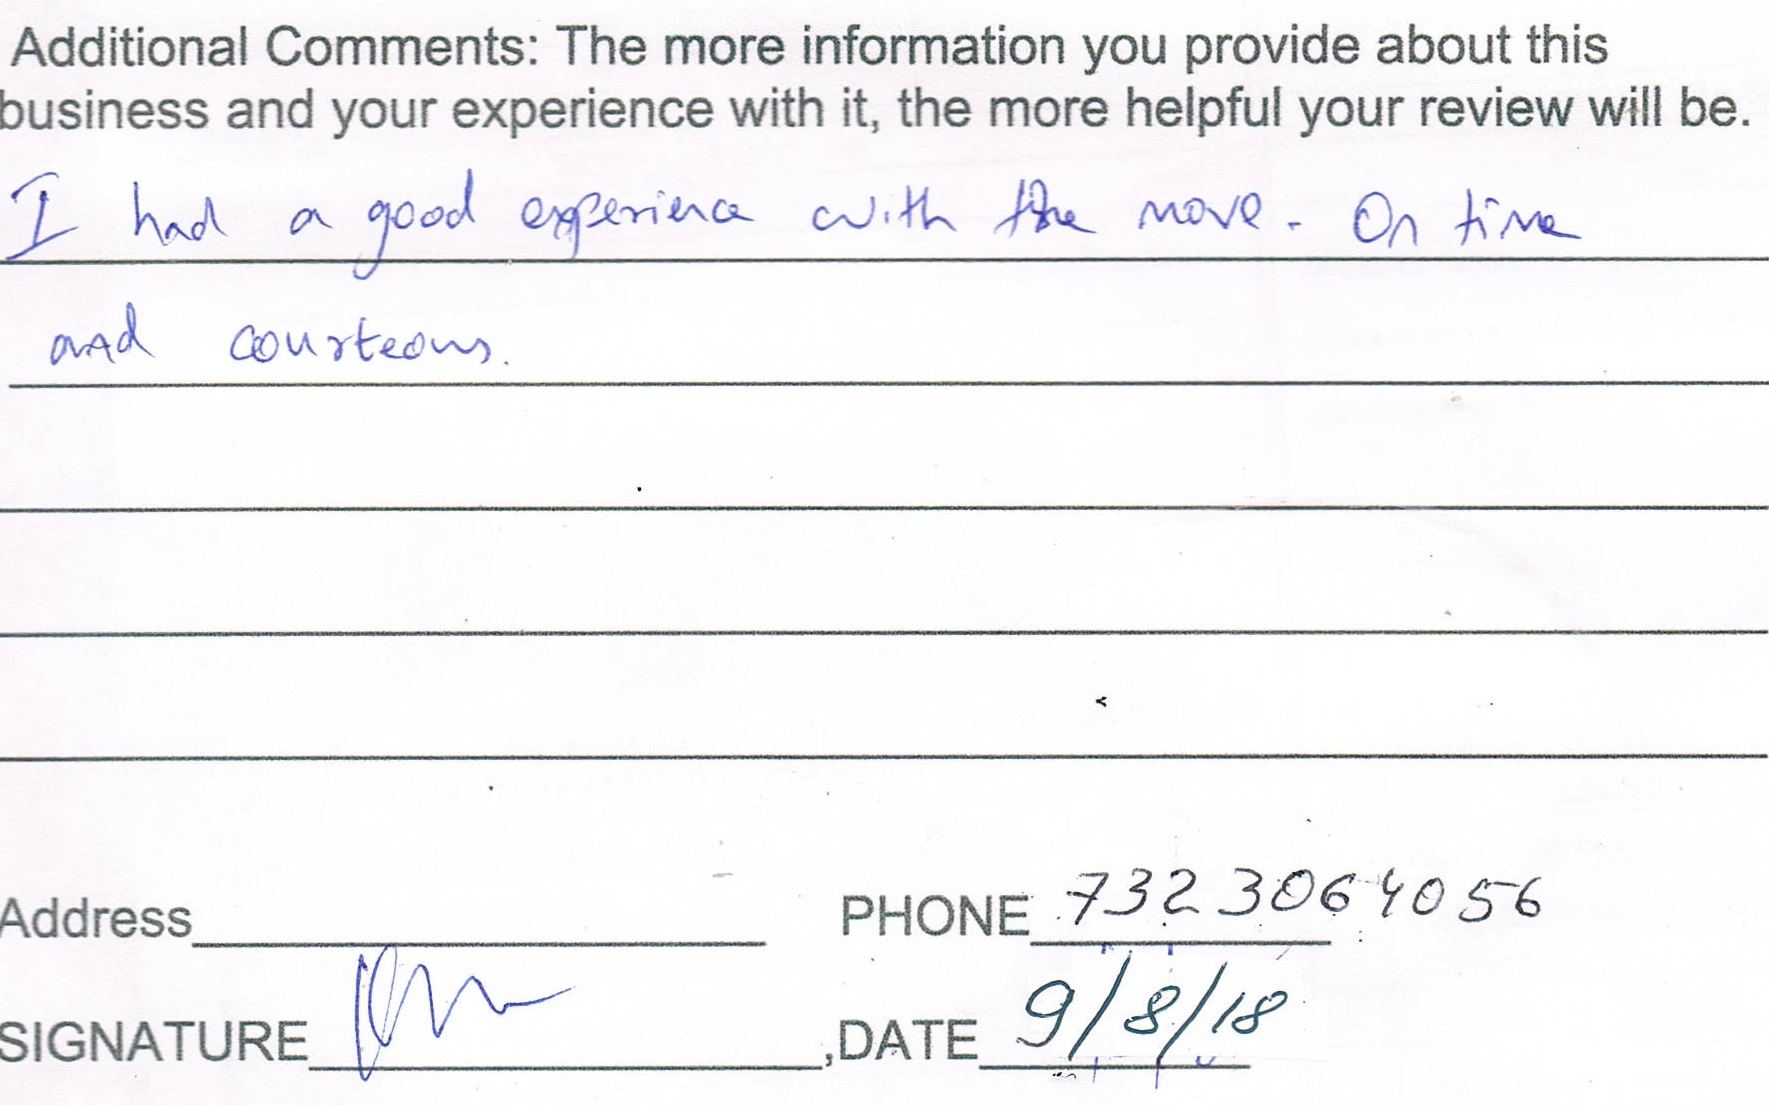 Additional Comments: The more information you provide about this
business and your experience with it, the more helpful your review will be.
I had a good experience with the move. On time
and courteous.
Address PHONE 732 306 4056
SIGNATURE ,DATE 9/8/18